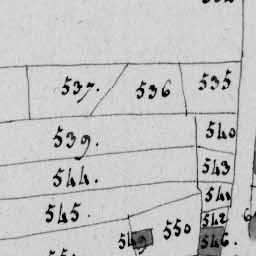 537.
536
535
539.
540
544.
543
541
545.
542
550
549
546.